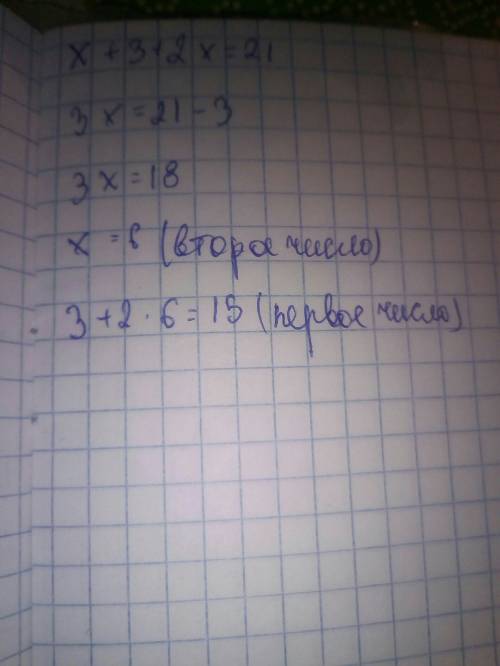 x + 3 + 2x = 21
3x = 21 - 3
3x = 18
x = 6 (второе число)
3 + 2 · 6 = 15 (первое число)